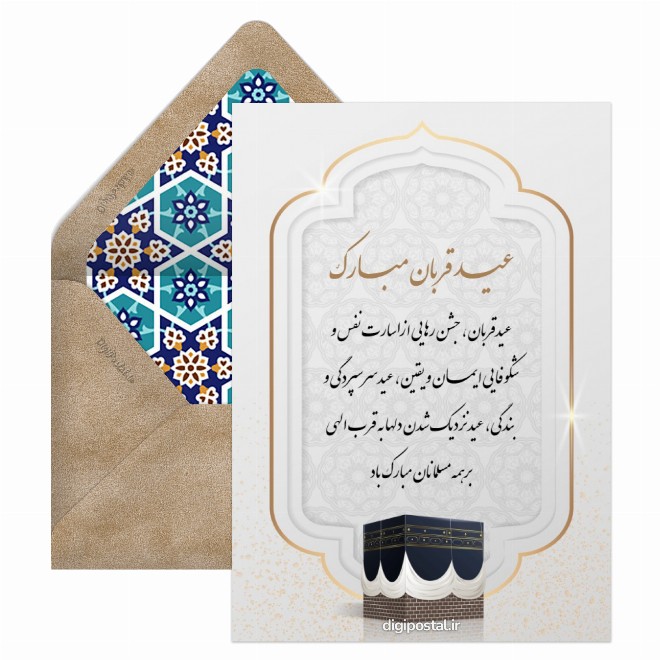 عید قربان مبارک
عید قربان، جشن رهایی از اسارت نفس و
شکوفایی ایمان و یقین، عید سرسپردگی و
بندگی، عید نزدیک شدن دلها به قرب الهی
بر همه مسلمانان مبارک باد
digipostal.ir